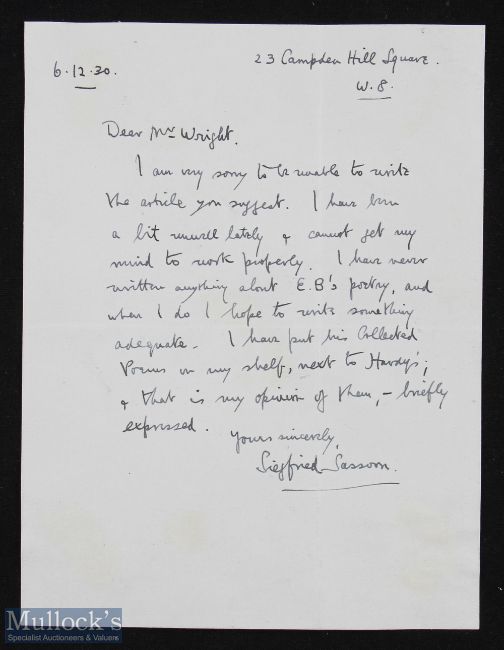 23 Campden Hill Square.
6.12.30.
W.8.
Dear Mr Wright.
I am very sorry to be unable to write
the article you suggest. I have been
a bit unwell lately & cannot get my
mind to work properly. I have never
written anything about E.B's poetry, and
when I do I hope to write something
adequate. I have put his Collected
Poems on my shelf, next to Hardy's;
& that is my opinion of them, – briefly
expressed.
Yours sincerely,
Siegfried Sassoon.
Mullock's
Specialist Auctioneers & Valuers